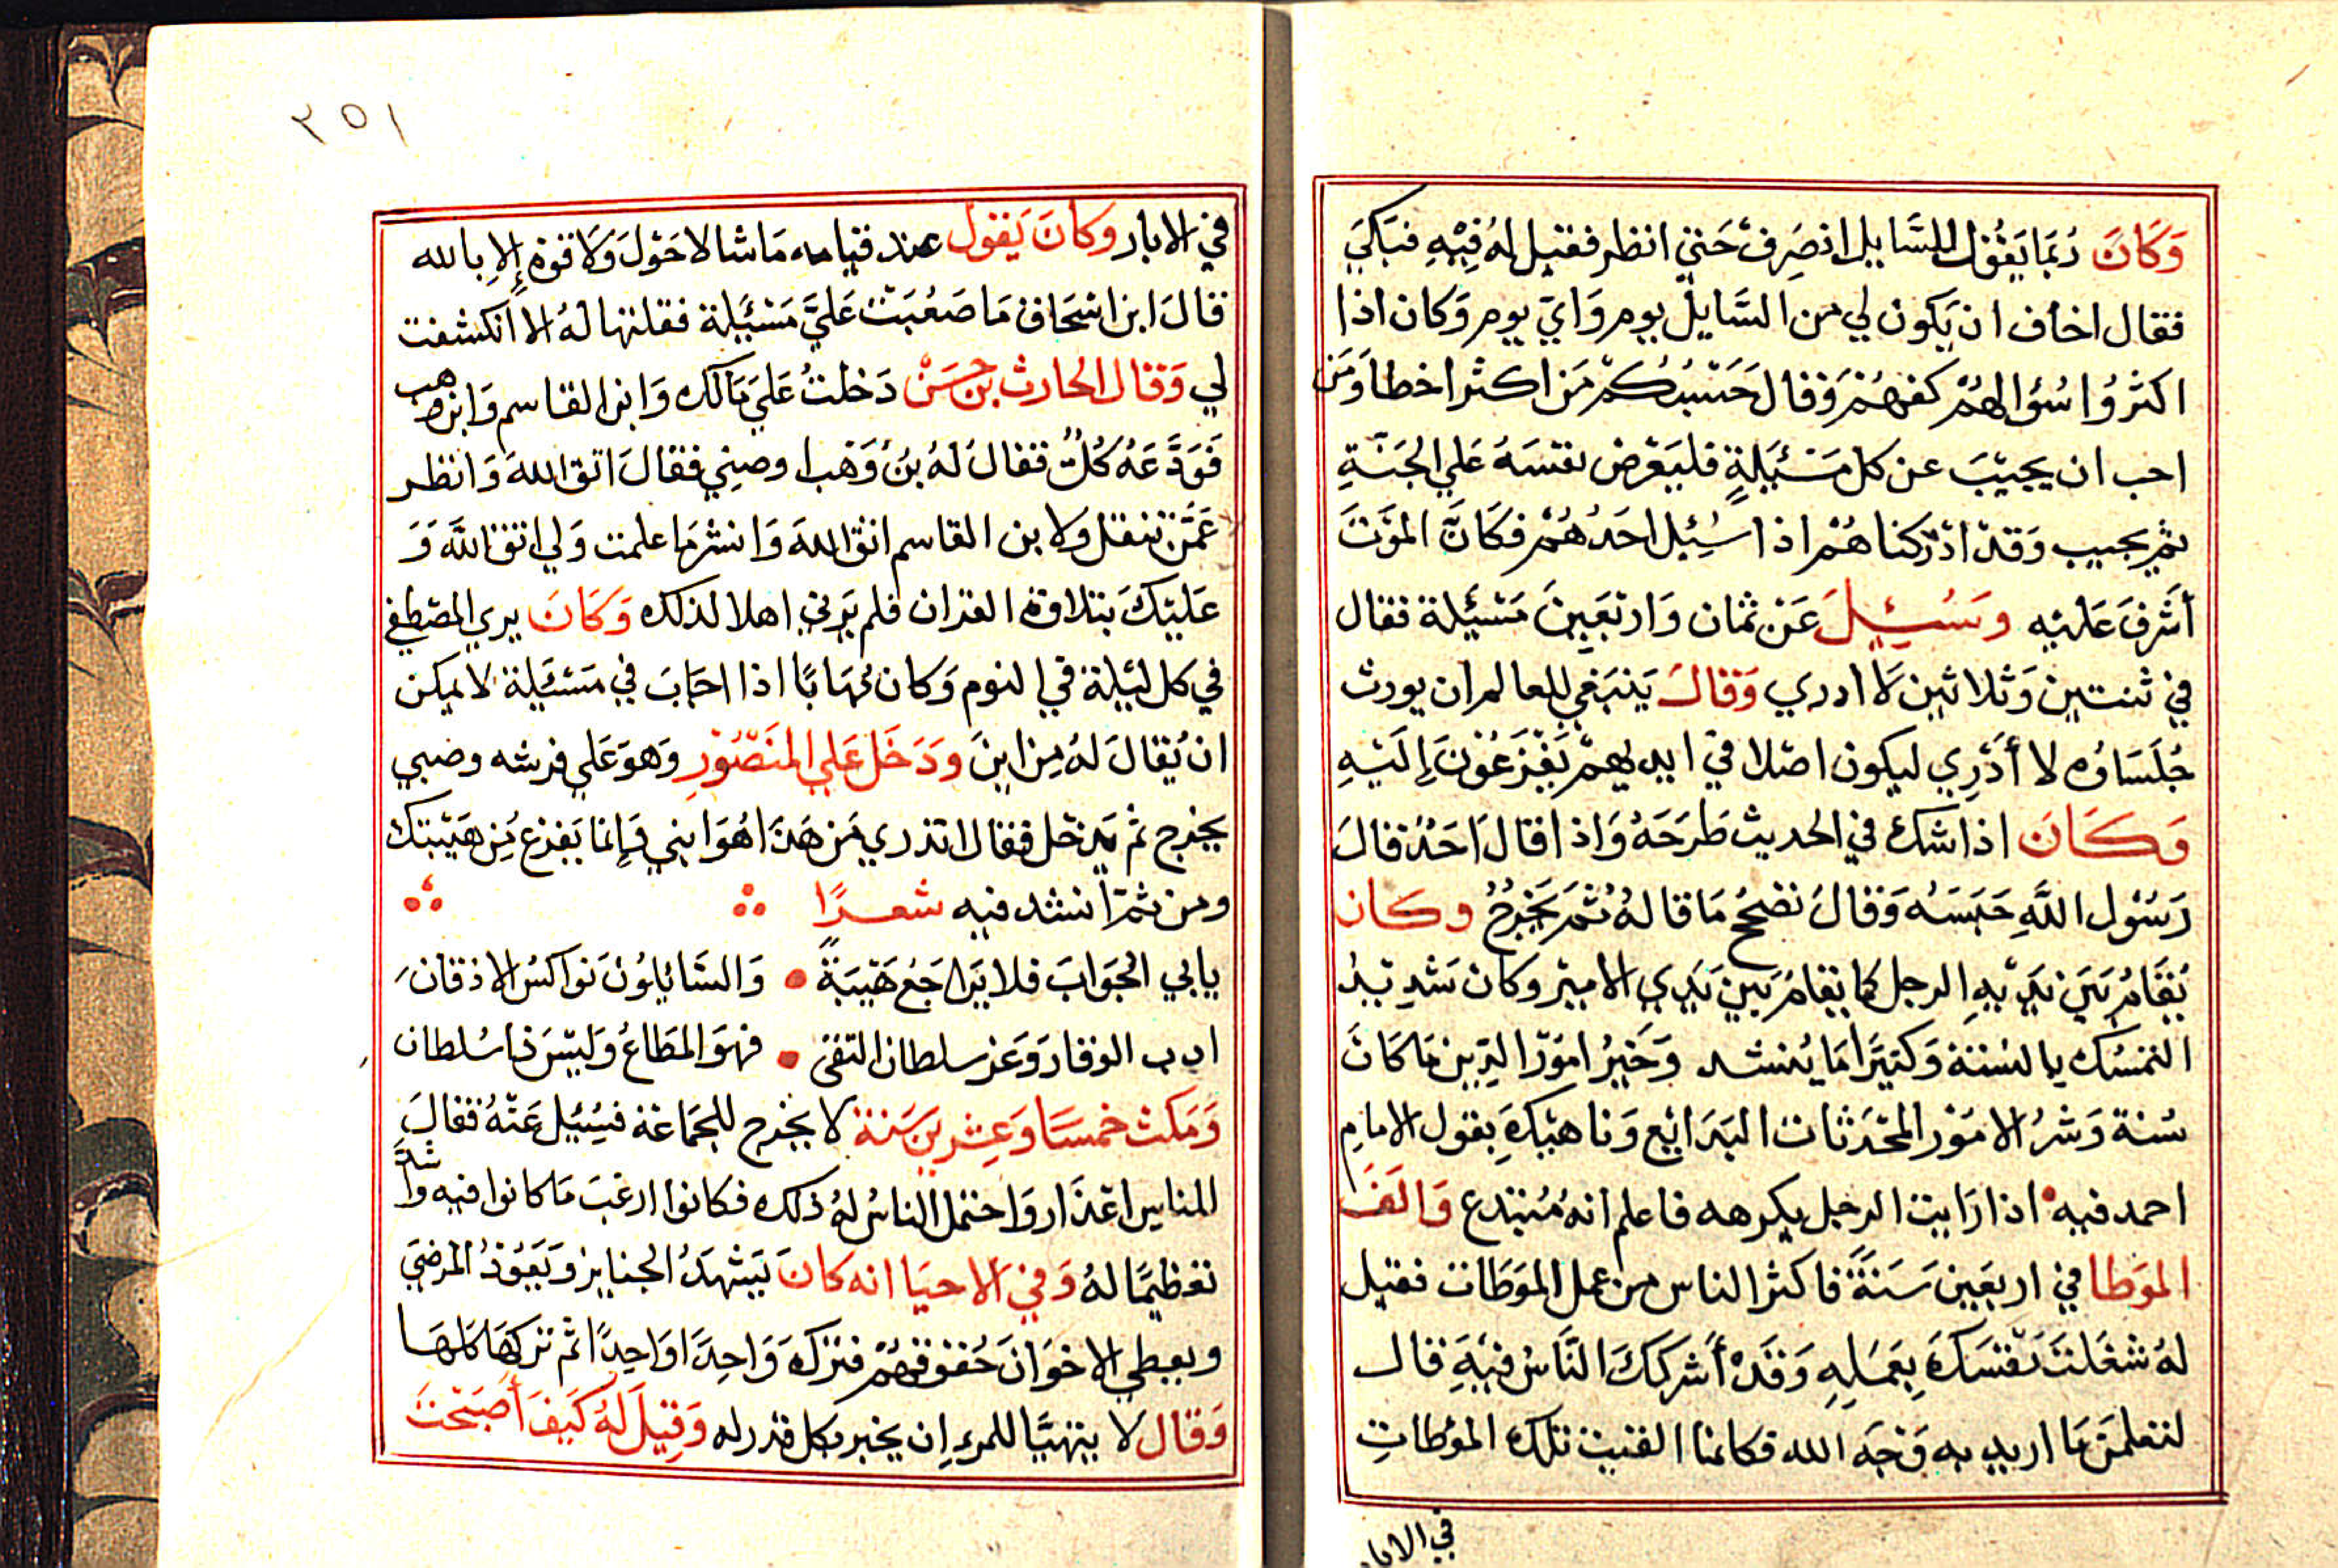 وَكَانَ رُبَمَا يَقُوْل للسَّايل انصَرِف حَتي انظر فقيل لهُ فِيْهِ فبَكيَ
فقال اخاف ان يَكون لي من السَّايل يوم وَايّ يوم وَكان اذا
اكثرُوا سُؤالهُمْ كفهُمْ وَقالَ حَسْبُكُمْ مَن اكثر اخطا وَمَن
احب ان يجيْبَ عن كل مَسْئَلةٍ فليَعْرض نفسَهُ عَلي الجَنّةِ
ثم يجيب وَقدْ ادْركناهُمْ اذا سُئِل احَدُهُمْ فكَانَّ الموْتَ
أشرفَ عَليْه وسُئِيلَ عَنْ ثمان وَارْبَعِينَ مَسْئِلة فقال
في ثنتين وَثلاثين لا ادري وَقالَ يَنبَغي للعالم ان يورث
جُلَسَاؤه لا أدْرِي ليكون اصْلا في ايديهمْ يَفْزَعُوْنَ إليْهِ
وَكَانَ اذا شك في الحديث طَرَحَهُ وَاذا قالَ احَدٌ قالَ
رَسُوْل اللَّهِ حَبَسَهُ وَقالَ نصحح مَا قالهُ ثمَّ يَخْرجُ وكان
يُقَامُ بَيْنَ يَدَيْهِ الرجل كما يقامُ بَيْنَ يَدَيِ الامير وكان شَدِيْدُ
التمسُك بالسُنة وَكثيرًا مَا يُنشد وَخَيْرُ امُوْر الدِين مَا كانَ
سُنة وَشرُ الامُوْر المحْدَثات البَدَائِع وَناهيْكَ بقول الامام
احمد فيه اذا رَايت الرجل يكرهه فاعلم انهُ مُبْتدع وَالفَ
الموَطا في اربعين سَنَةً فاكثر الناس من عمل الموَطَات فقيل
لهُ شغَلتَ نفْسَكَ بِعَمَلِهِ وَقَدْ أشركَكَ النَّاسُ فيْهِ قال
لتعلمَنّ مَا اريد به وَجْهَ الله فكانما القيت تلك الموَطاتِ
في الابا
٣٥١
في الابار وَكَانَ يَقول عند قيامه مَا شا لا حَوْلَ وَلا قوة إلا بالله
قالَ ابن اسْحَاق مَا صَعُبَتْ عَليَّ مَسْئَلة فقلتها لهُ الا انكشفت
لي وَقال الحارث بن حسَن دَخلتُ عَليَ مَالك وَابن القاسم وَابن وهب
فَوَدَّعَهُ كُلٌ فقالَ لهُ بنُ وَهْب اوصني فقالَ اتق اللهَ وَانظر
عَمَّنْ تنقل وَلابن القاسم اتق اللهَ وَانشر مَا علمت وَلي اتق اللَّهَ وَ
عَليْكَ بتلاوة القران فلم يَرَني اهلا لذلك وَكَانَ يري المصْطفي
في كل ليْلة في النوم وَكان مُهَابًا اذا اجَابَ في مَسْئَلة لا يمكن
ان يُقالَ لهُ مِن اينَ ودَخَل عَلي المنَصُوْرِ وَهوَ عَلي فرشه وصبي
يخرج ثم يَدخل فقال اتدْري مَن هَذا هُوَ ابني وَإنما يَفزع مِن هَيْبَتك
ومن ثمّ انشد فيه شعرًا
يابي الجَوَابَ فلا يُرَاجَعُ هَيْبَةً وَالسَّائِلوُنَ نوَاكسُ الاذقانِ
ادب الوقار وَعَز سلطان التقى فهوَ المطَاعُ وَليْسَ ذا سُلطان
وَمَكث خمسًا وَعِشرين سَنة لا يخرج للجمَاعَة فسُئِيل عَنْهُ فقالَ
للناس اعْذار وَاحتمل الناسُ لهُ ذلك فكانوا ارغبَ مَا كانوا فيه وَاشدّ
تعْظيمًا لهُ وَفي الاحيَا انه كانَ يَشهَدُ الجنايز وَيَعُوْدُ المرضي
ويعطي الاخوَانَ حُقوقهُمْ فتركَ وَاحِدًا وَاحِدًا ثم ترَكهَا كلهَا
وَقال لا يتهيّا للمرء إن يخبر بكل قدر له وَقِيلَ لهُ كيْفَ أصْبَحْتَ